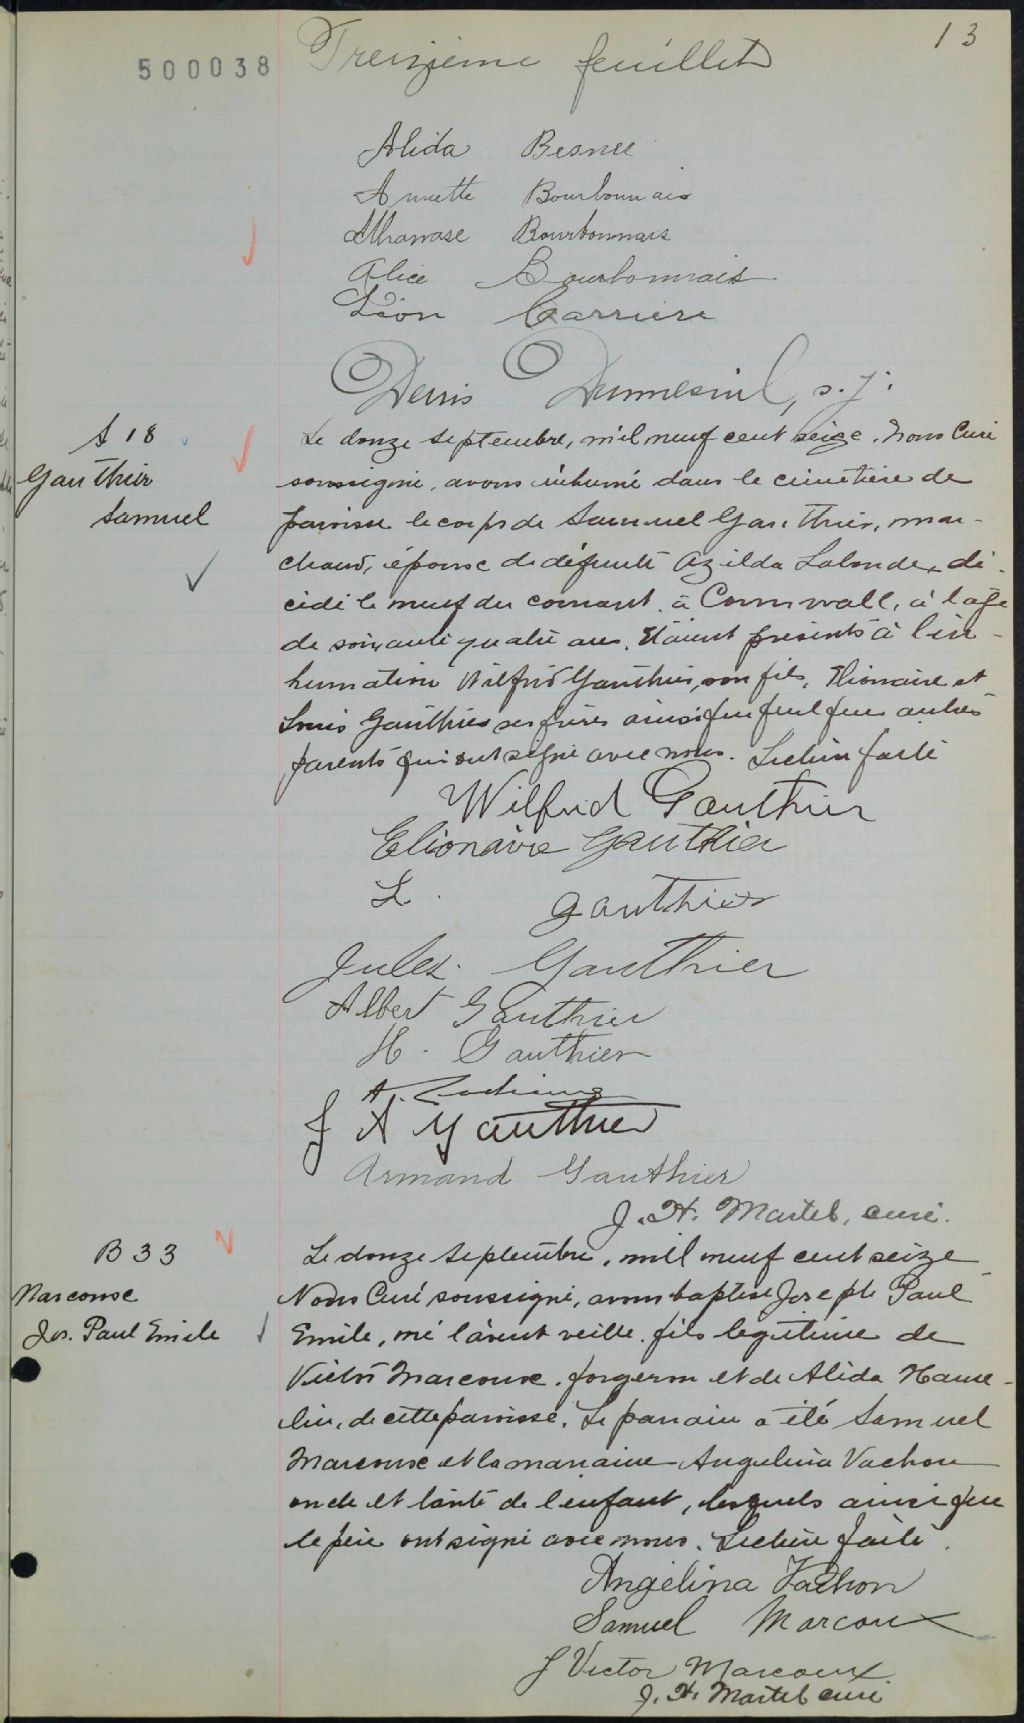 13
500038 Treizième feuillet
Alida Besner
Annette Bourbonnais
Athanase Bourbonnais
Alice Bourbonnais
Léon Carrière
Denis Dumesnil, s.j.
S 18
Gauthier
Samuel
Le douze septembre, mil neuf cent seize. Nous Curé
soussigné, avons inhumé dans le cimetière de
paroisse le corps de Samuel Gauthier, mar-
chand, époux de défunte Azilda Lalonde, dé-
cédé le neuf du courant à Cornwall, à l'age
de soixante quatre ans. Étaient présents à l'in-
humation Wilfrid Gauthier, son fils, Elionaire et
Louis Gauthier ses frères ainsi que quelques autres
parents qui ont signé avec nous. Lecture faite
Wilfrid Gauthier
Elionaire Gauthier
L. Gauthier
Jules Gauthier
Albert Gauthier
H. Gauthier
A.
J A Gauthier
Armand Gauthier
J. H. Martel, curé.
B 33
Marcoux
Jos. Paul Emile
Le douze septembre, mil neuf cent seize
Nous Curé soussigné, avons baptisé Joseph Paul
Emile, né l'avant veille, fils légitime de
Victor Marcoux, forgeron et de Alida Hame-
lin, de cette paroisse. Le parrain a été Samuel
Marcoux et la marraine Angelina Vachon
oncle et tante de l'enfant, lesquels ainsi que
le père ont signé avec nous. Lecture faite.
Angélina Vachon
Samuel Marcoux
J Victor Marcoux
J. H. Martel curé